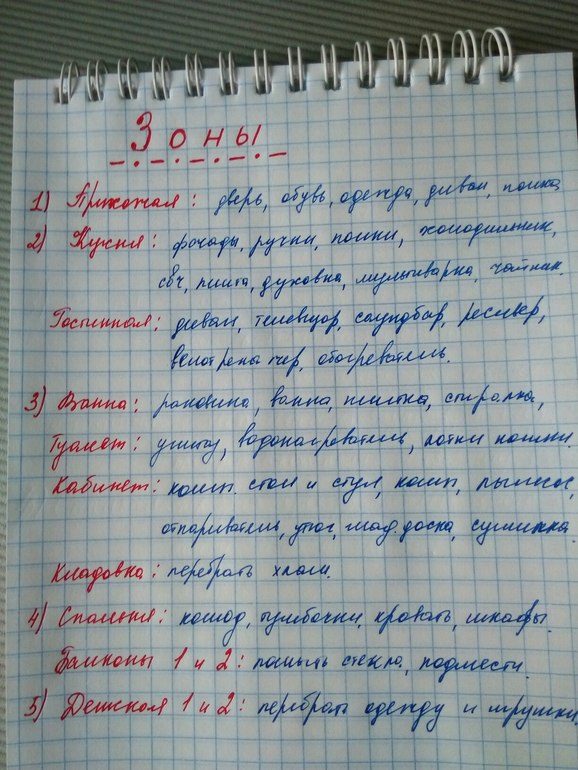 Зоны
1) Прихожая: дверь, обувь, одежда, диван, полка
2) Кухня: фасады, ручки, полки, холодильник,
свч, плита, духовка, мультиварка, чайник.
Гостинная: диван, телевизор, саундбар, ресивер,
велотренажер, обогреватель.
3) Ванна: раковина, ванна, плитка, стиралка,
Туалет: унитаз, водонагреватель, лотки кошки.
Кабинет: комп. стол и стул, комп, пылесос,
отпариватель, утюг, глад. доска, сушилка.
Кладовка: перебрать хлам.
4) Спальня: комод, тумбочки, кровать, шкафы.
Балконы 1 и 2: помыть стекла, подмести.
5) Детская 1 и 2: перебрать одежду и игрушки